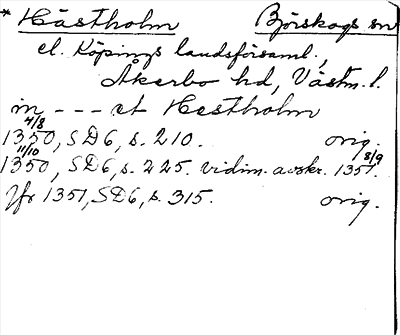 * Hästholm Björskogs sn
el. Köpings landsförsaml.,
Åkerbo hd, Västm. l.
in --- et Hestholm
1350 4/8, SD6, s. 210. orig.
1350 11/10, SD6, s. 225. vidim. avskr. 1351 8/9.
Jfr 1351, SD6, s. 315. orig.